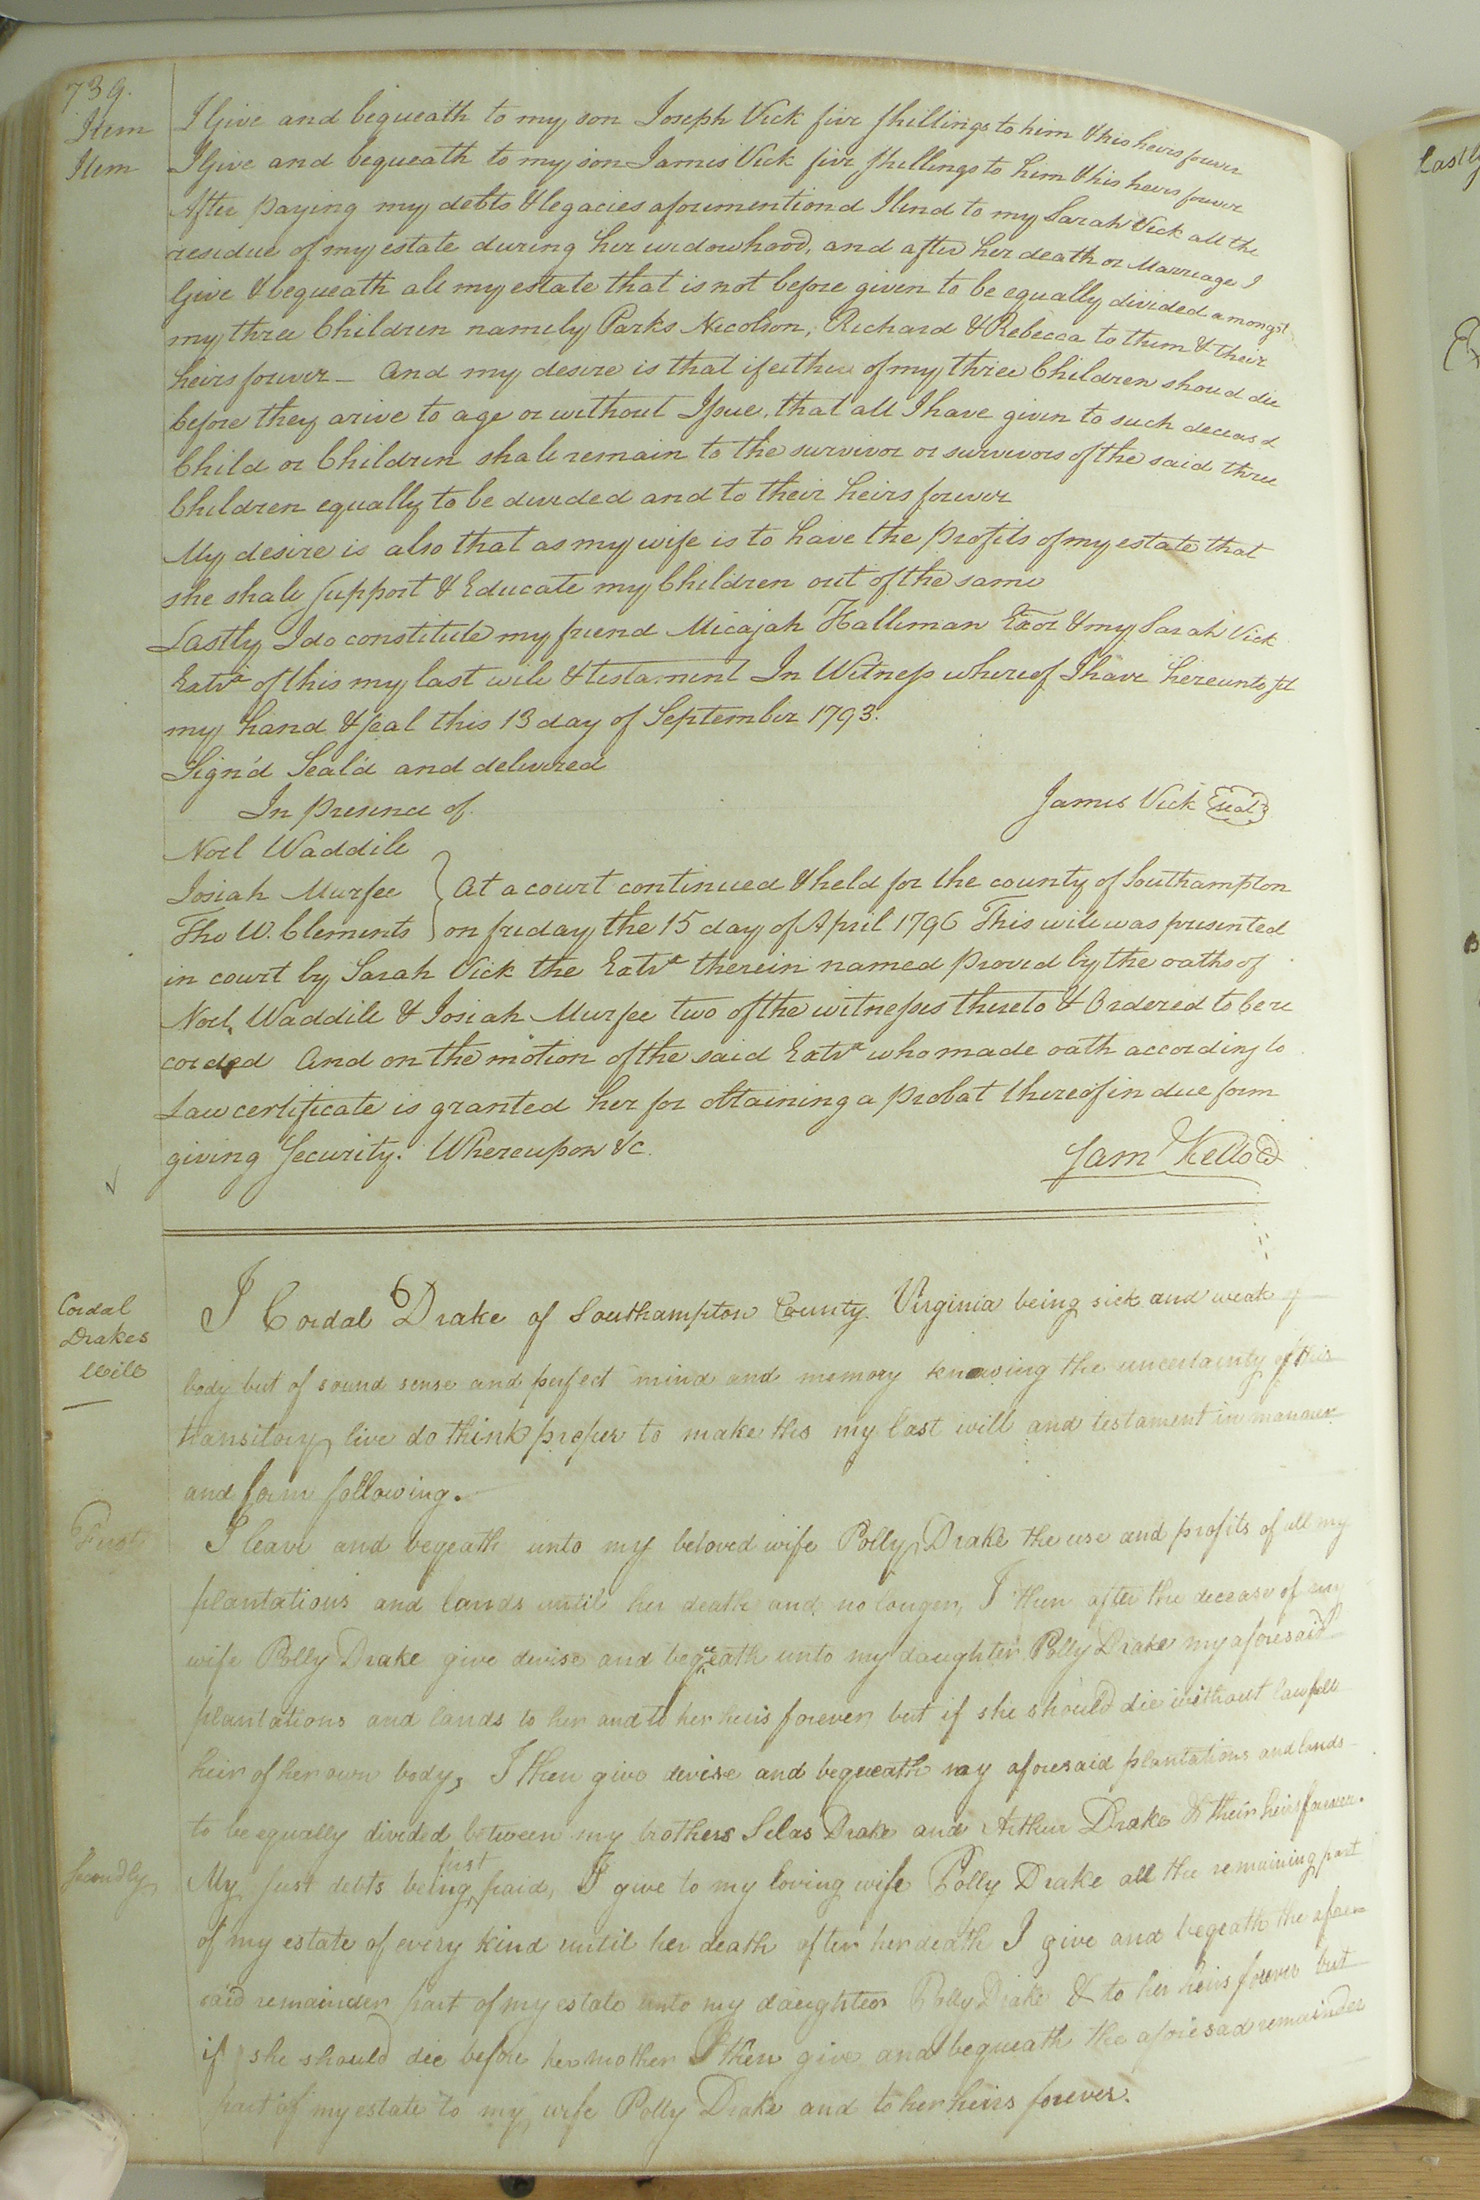 739.
Item I Give and bequeath to my son Joseph Vick five shillings to him & his heirs forever
Item I Give and bequeath to my son James Vick five shillings to him & his heirs forever
After paying my debts & legacies aforementiond I lend to my Sarah Vick all the
residue of my estate during her widowhood, and after her death or Marriage I
Give & bequeath all my estate that is not before given to be equally divided amongst
my three Children namely Parks Nicolson, Richard & Rebecca to them & their
heirs forever — And my desire is that if either of my three Children shoud die
before they arive to age or without Issue, that all I have given to such deceasd
Child or Children shall remain to the survivor or survivors of the said three
Children equally to be divided and to their heirs forever
My desire is also that as my wife is to have the profits of my estate that
she shall support & Educate my Children out of the same
Lastly I do constitute my friend Micajah Halliman Exor & my Sarah Vick
Extrx of this my last will & testament In Witness whereof I have hereunto set
my hand & seal this 13 day of September 1793.
Sign'd Seal'd and delivered
In presence of
James Vick seal
Noel Waddill
Josiah Murfee } At a court continued & held for the county of Southampton
Tho W. Clements on friday the 15 day of April 1796 This will was presented
in court by Sarah Vick the Extrx therein named proved by the oaths of
Noel Waddill & Josiah Murfee two of the witnesses thereto & Ordered to be re
corded And on the motion of the said Extrx who made oath according to
Law certificate is granted her for obtaining a probat thereof in due form
giving security. Whereupon &c.
Sam Kello
Cordal
Drakes
Will
I Cordal Drake of Southampton County Virginia being sick and weak of
body but of sound sense and perfect mind and memory knowing the uncertainty of this
transitory live do think proper to make this my last will and testament in manner
and form following.
First I leave and beqeath unto my beloved wife Polly Drake the use and profits of all my
plantations and lands until her death and no longer, I then after the decease of my
wife Polly Drake give devise and bequeath unto my daughter Polly Drake my aforesaid
plantations and lands to her and to her heirs forever but if she should die without lawfull
heir of her own body, I then give devise and bequeath my aforesaid plantations and lands
to be equally divided between my brothers Silas Drake and Arthur Drake & their heirs forever.
Secondly My just debts being first paid, I give to my loving wife Polly Drake all the remaining part
of my estate of every kind until her death after her death I give and beqeath the afore
said remainder part of my estate unto my daughter Polly Drake & to her heirs forever but
if she should die before her mother I then give and bequeath the aforesad remainder
part of my estate to my wife Polly Drake and to her heirs forever.
Lastly